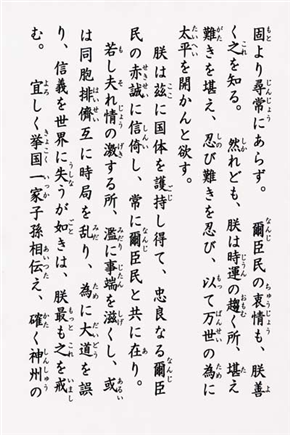 固より尋常にあらず。　爾臣民の衷情も、朕善
く之を知る。　然れども、朕は時運の趨く所、堪え
難きを堪え、忍び難きを忍び、以て万世の為に
太平を開かんと欲す。
朕は茲に国体を護持し得て、忠良なる爾臣
民の赤誠に信倚し、常に爾臣民と共に在り。
若し夫れ情の激する所、濫に事端を滋くし、或
は同胞排儕互に時局を乱り、為に大道を誤
り、信義を世界に失うが如きは、朕最も之を戒
む。　宜しく挙国一家子孫相伝え、確く神州の